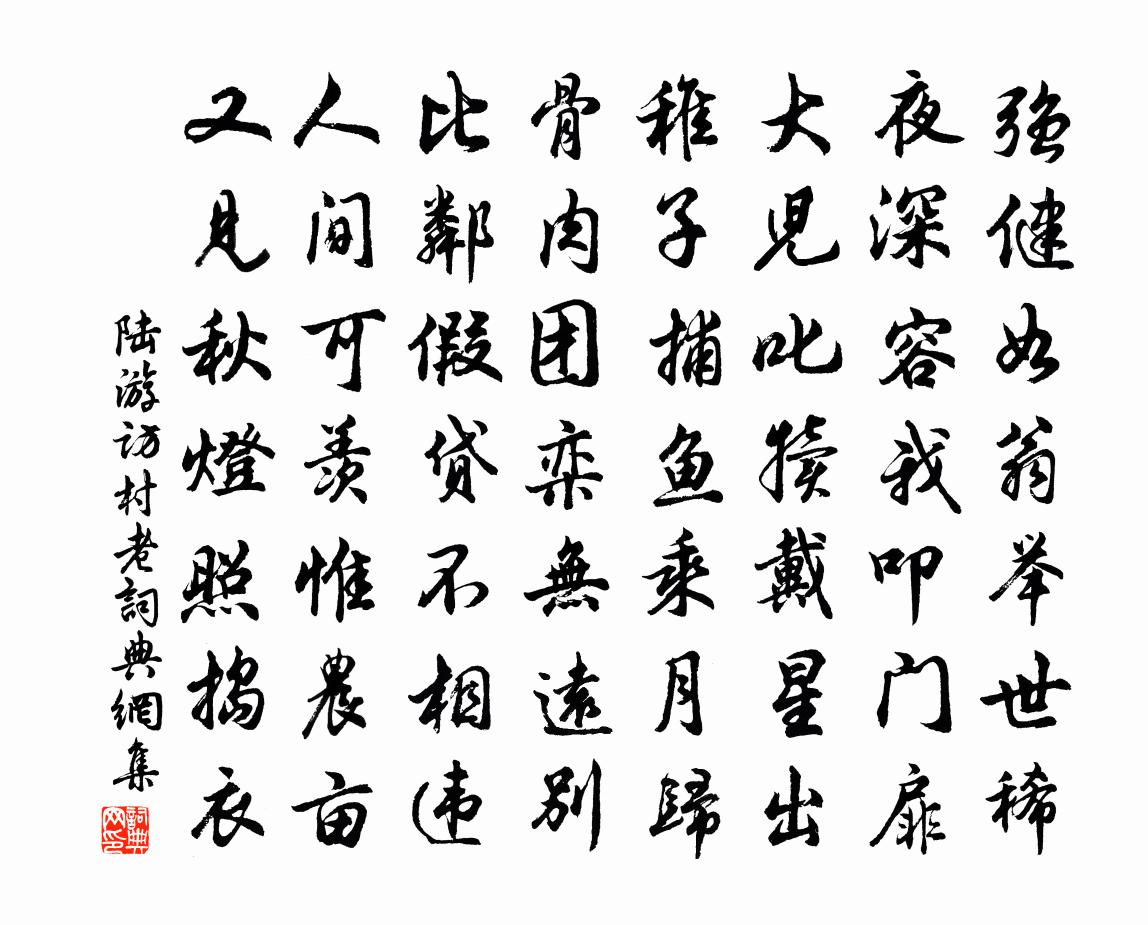 强健如翁举世稀
夜深容我叩门扉
大児叱犊戴星出
稚子捕鱼乘月歸
骨肉团栾無遠别
比鄰假贷不相违
人间可羡惟農亩
又見秋燈照搗衣
陆游访村老詞典網集
詞典网印